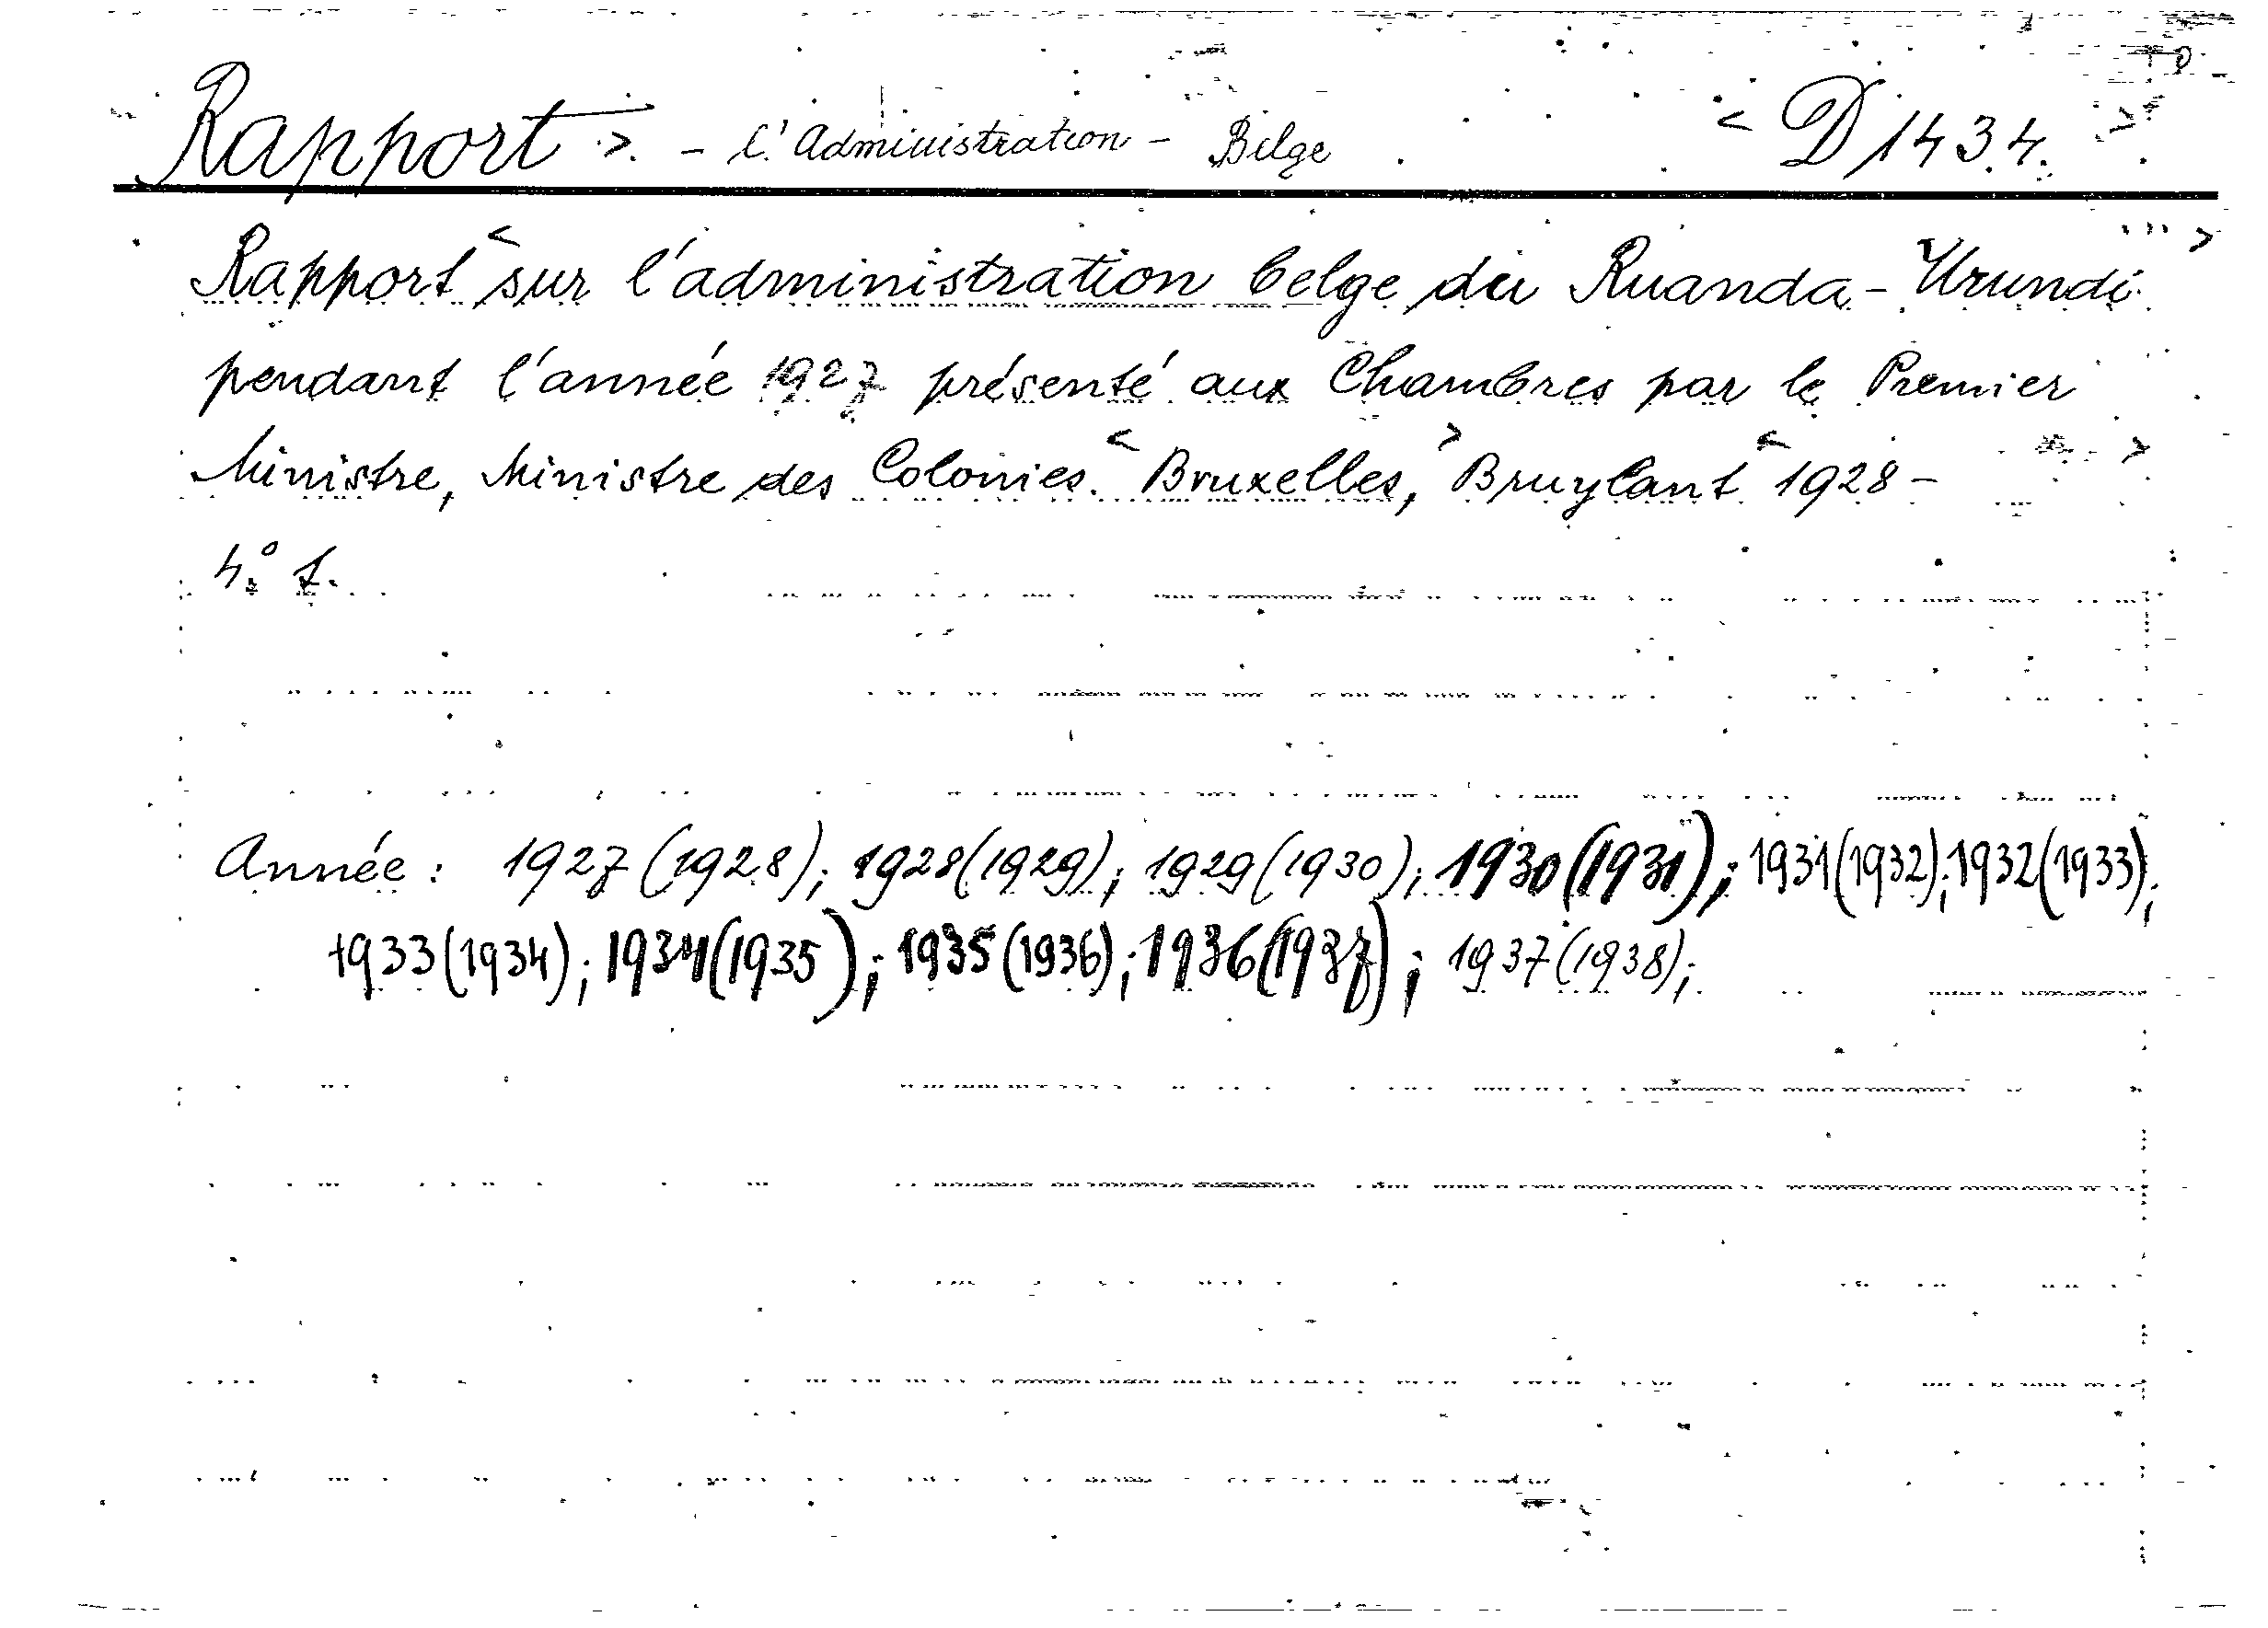 Rapport >. - L'Administration - Belge < D 1434. >
Rapport < sur l'administration belge du Ruanda-Urundi >
pendant l'année 1927 présenté aux Chambres par le Premier
Ministre, Ministre des Colonies. < Bruxelles, > Bruylant < 1928 - >
4° f.
Année : 1927 (1928); 1928 (1929); 1929 (1930); 1930 (1931); 1931 (1932); 1932 (1933);
1933 (1934); 1934 (1935); 1935 (1936); 1936 (1937); 1937 (1938);